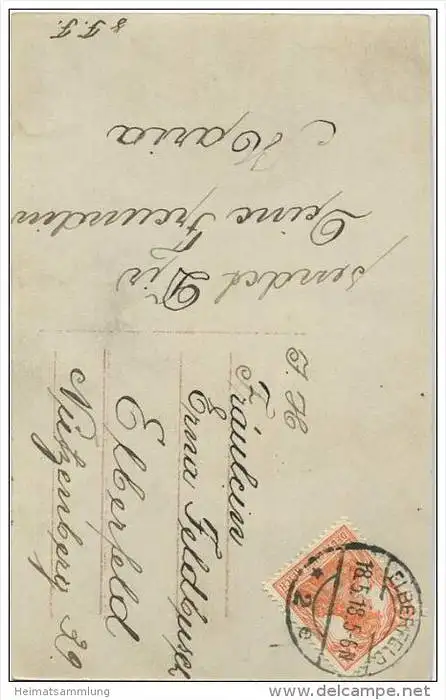 sendet Dir
Deine Freundin
Maria
& F. F.
J. H
Fräulein
Erna Feldhusel
Elberfeld
Nützenberg 29
ELBERFELD
18.5.18.5-6N
* 2 e
Heimatsammlung
www.delcampe.net